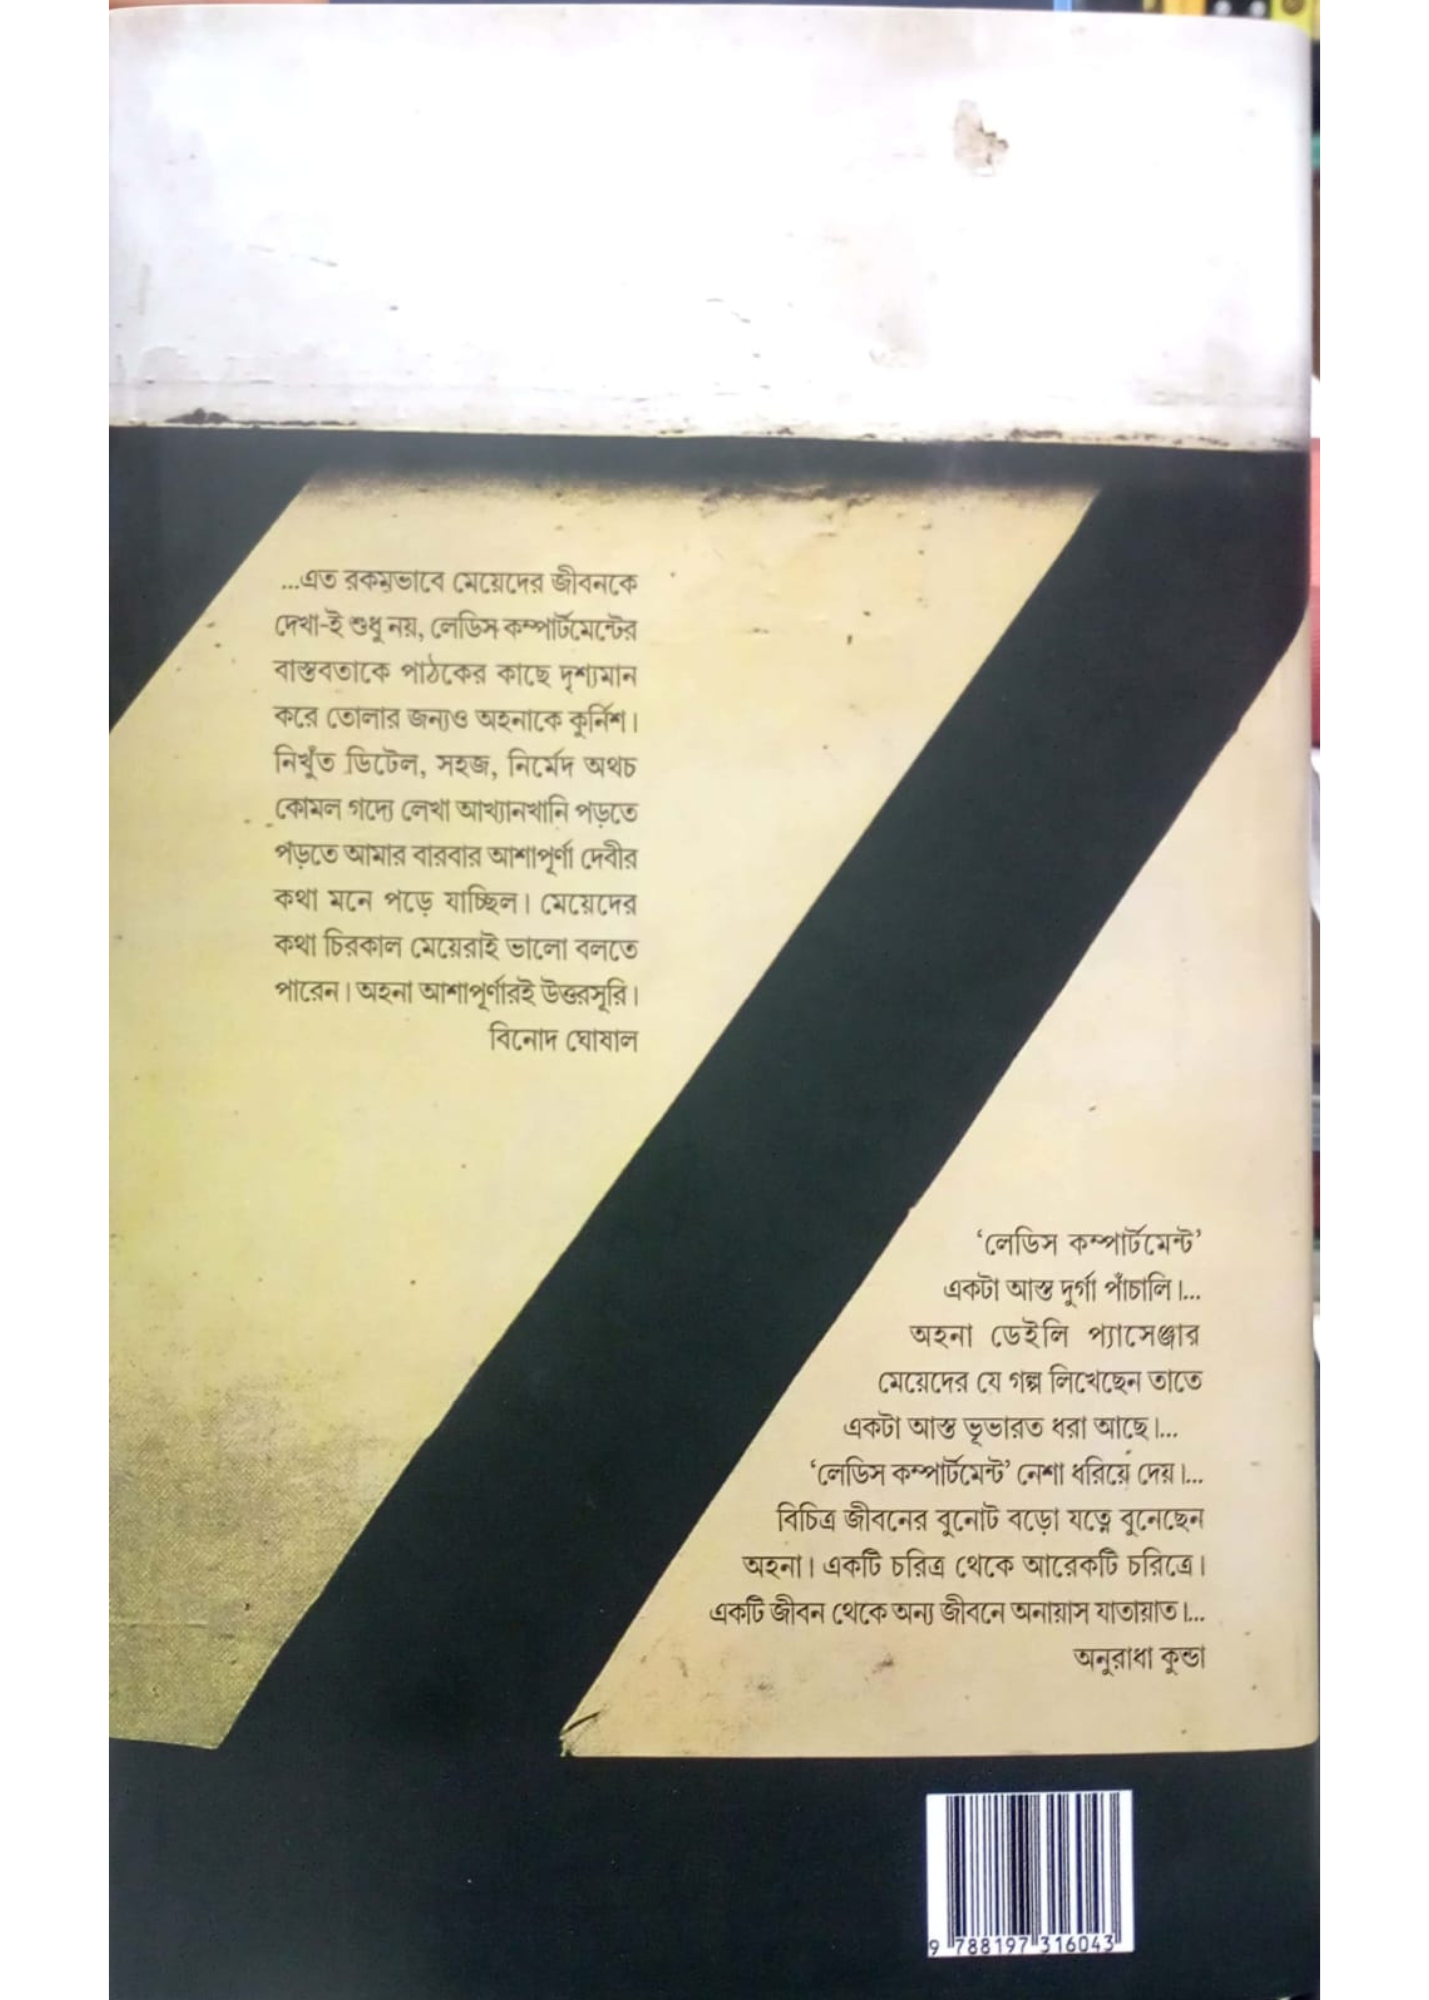 ...এত রকমভাবে মেয়েদের জীবনকে
দেখা-ই শুধু নয়, লেডিস কম্পার্টমেন্টের
বাস্তবতাকে পাঠকের কাছে দৃশ্যমান
করে তোলার জন্যও অহনাকে কুর্নিশ।
নিখুঁত ডিটেল, সহজ, নির্মেদ অথচ
কোমল গদ্যে লেখা আখ্যানখানি পড়তে
পড়তে আমার বারবার আশাপূর্ণা দেবীর
কথা মনে পড়ে যাচ্ছিল। মেয়েদের
কথা চিরকাল মেয়েরাই ভালো বলতে
পারেন। অহনা আশাপূর্ণারই উত্তরসূরি।
বিনোদ ঘোষাল
‘লেডিস কম্পার্টমেন্ট’
একটা আস্ত দুর্গা পাঁচালি।...
অহনা ডেইলি প্যাসেঞ্জার
মেয়েদের যে গল্প লিখেছেন তাতে
একটা আস্ত ভূভারত ধরা আছে।...
‘লেডিস কম্পার্টমেন্ট’ নেশা ধরিয়ে দেয়।...
বিচিত্র জীবনের বুনোট বড়ো যত্নে বুনেছেন
অহনা। একটি চরিত্র থেকে আরেকটি চরিত্রে।
একটি জীবন থেকে অন্য জীবনে অনায়াস যাতায়াত।...
অনুরাধা কুন্ডা
9 788197 316043